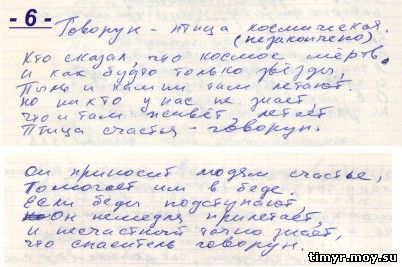 - 6 -
Говорун - птица космическая.
(незакончено)
Кто сказал, что космос мёртв,
и как будто только звёзды,
Пыль и камни там летают.
Но никто у нас не знает,
что и там живёт, летает
Птица счастья - говорун.
Он приносит людям счастье,
Помогает им в беде.
Если беды подступают,
Он немедля прилетает,
и несчастный точно знает,
что спаситель говорун.
timyr.moy.su